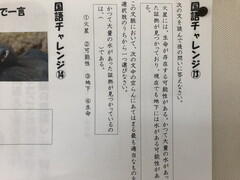 国語チャレンジ⑬
次の文を読んで後の問いに答えなさい。
火星には、生命が存在する可能性がある。かつて大量の水があっ
た証拠が見つかっており、現在でも地下には水がある可能性がある。
この文脈において、次の文中の空らんにあてはまる最も適当なものを
選択肢のうちから一つ選びなさい。
かつて大量の水があった証拠が見つかっているの
は、（　）である。
①火星　②可能性　③地下　④生命
国語チャレンジ⑭
で一言